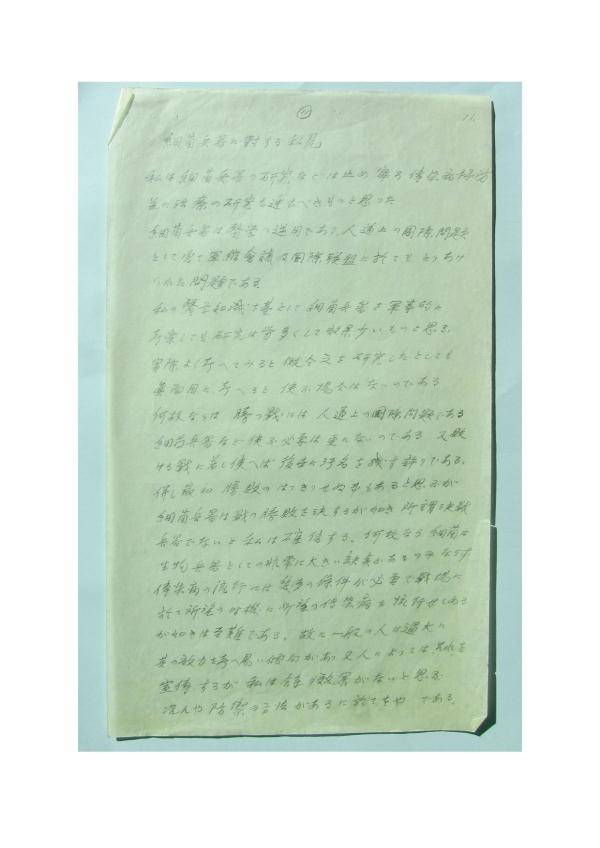 11.
細菌兵器に対する私見
私は細菌兵器の研究などは止め寧ろ傳染病豫防
並に治療の研究を進むべきものと思った
細菌兵器は醫学の逆用であり、人道上の國際問題
として嘗て軍縮會議及國際聯盟に於てもとりあげ
られた問題である
私の醫学知識を基として細菌兵器を軍事的に
考察しても研究は労多くして効果少いものと思ふ
実際よく考へてみると假令之を研究したとしても
真面目に考へると使ふ場合はないのである
何故ならば勝つ戦には人道上の國際問題である
細菌兵器など使ふ必要は更にないのである 又敗
ける戦に若し使へば後世に汚名を残す許りである。
併し最初勝敗のはっきりせぬ事もあると思ふが
細菌兵器は戦の勝敗を決するが如き所謂決戦
兵器でないと私は確信する。何故なら細菌は
生物兵器としての非常に大きい欠点があるのみならず
傳染病の流行には幾多の條件が必要で戦場に
於て所望の時機に所望の傳染病を流行せしめる
が如きは至難である。故に一般の人は過大に
其の效力を考へ易い傾向があり又人によっては其れを
宣傳するが私は餘り效果がないと思ふ
况んや防禦の方法があるに於てをや である。